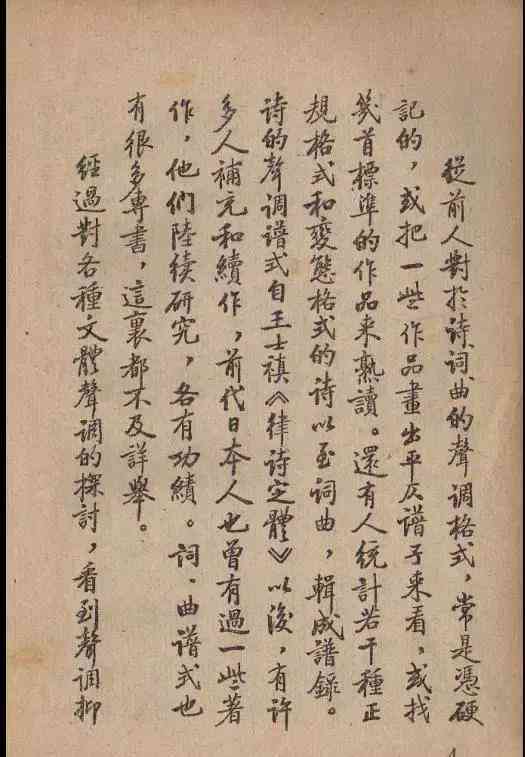 從前人對於诗词曲的聲调格式，常是憑硬
記的，或把一些作品畫出平仄譜子来看，或找
幾首標準的作品来熟讀。還有人統計若干種正
規格式和變態格式的诗以至词曲，輯成譜錄。
诗的聲调谱式自王士禛《律诗定體》以後，有许
多人補充和續作，前代日本人也曾有過一些著
作，他們陸续研究，各有功績。词、曲谱式也
有很多專書，這裏都不及詳舉。
經過對各種文體聲调的探討，看到聲调抑